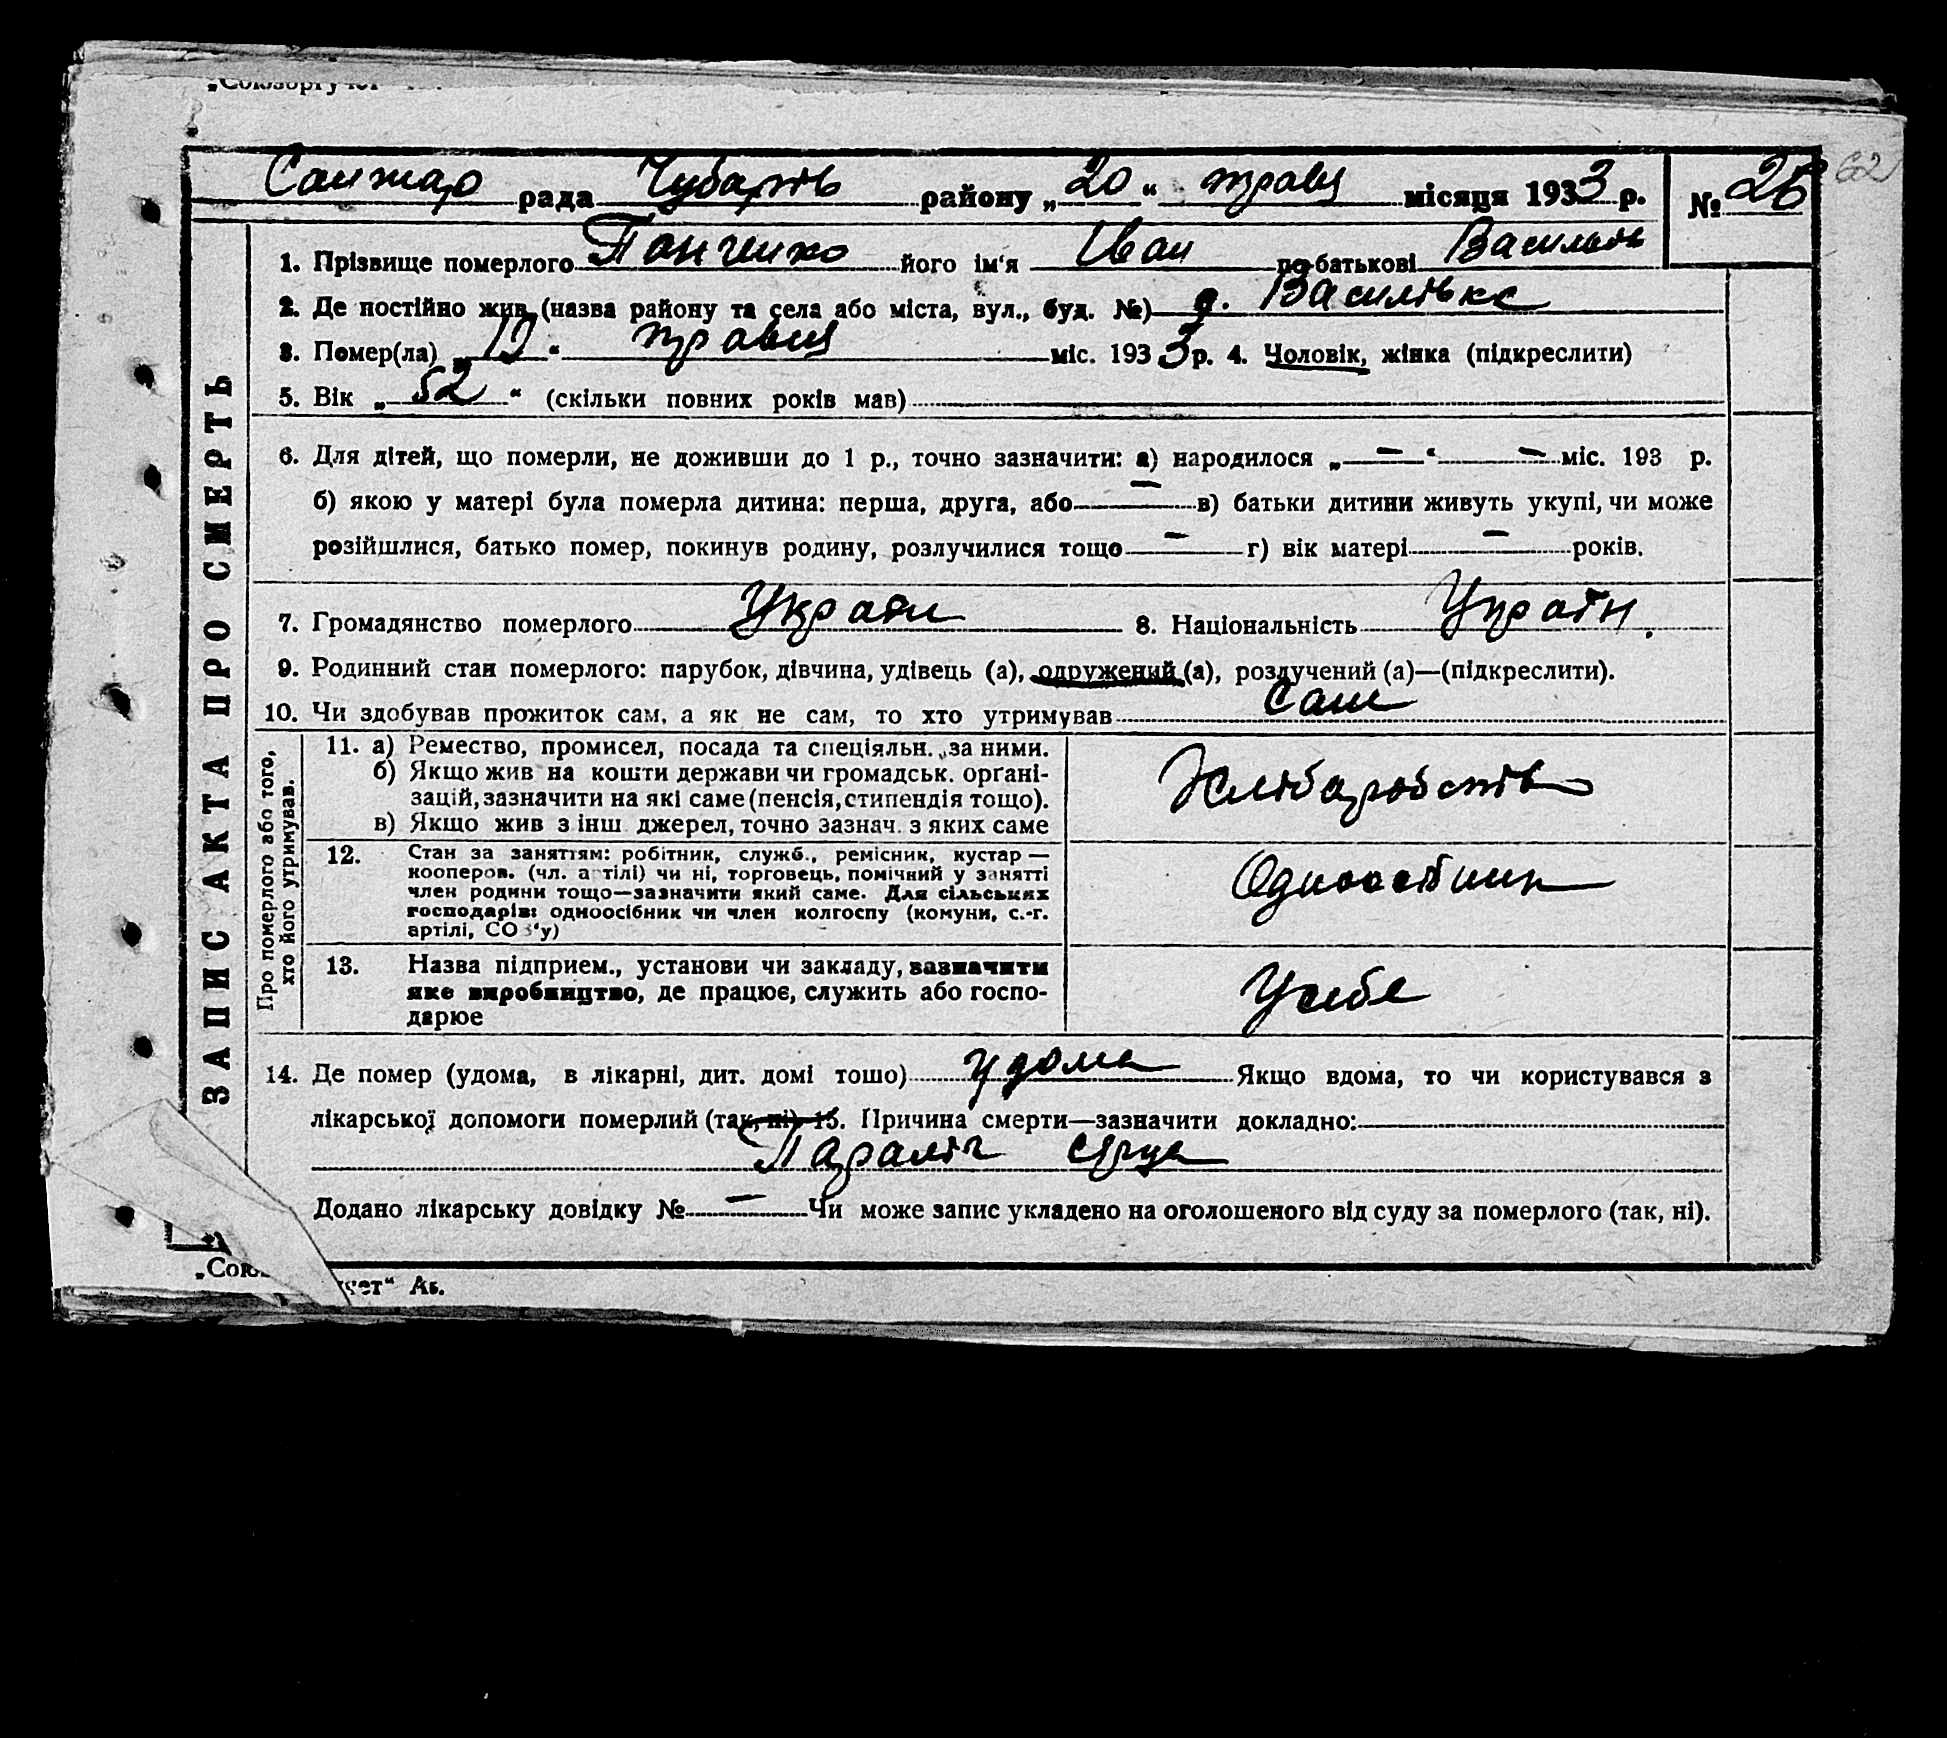 „Союзоргучет
Санжар рада Чубарів району „20“ травя місяця 1933 р. № 26
62
ЗАПИС АКТА ПРО СМЕРТЬ
1. Прізвище померлого Панченко його ім‘я Іван по батькові Василів
2. Де постійно жив (назва району та села або міста, вул., буд. №) с. Василівка
3. Помер(ла) „19“ травня міс. 1933 р. 4. Чоловік, жінка (підкреслити)
5. Вік „52“ (скільки повних років мав)
6. Для дітей, що померли, не доживши до 1 р., точно зазначити: а) народилося „—“ — міс. 193 р.
б) якою у матері була померла дитина: перша, друга, або — в) батьки дитини живуть укупі, чи може
розійшлися, батько помер, покинув родину, розлучилися тощо — г) вік матері — років.
7. Громадянство померлого Україн 8. Національність Україн.
9. Родинний стан померлого: парубок, дівчина, удівець (а), одружений (а), розлучений (а)—(підкреслити).
10. Чи здобував прожиток сам, а як не сам, то хто утримував Сам
Про померлого або того,
хто його утримував.
11. а) Ремество, промисел, посада та спеціяльн. за ними.
б) Якщо жив на кошти держави чи громадськ. орґані-
зацій, зазначити на які саме (пенсія, стипендія тощо).
в) Якщо жив з інш джерел, точно зазнач. з яких саме
Хлібаробств
12. Стан за заняттям: робітник, служб., ремісник, кустар —
кооперов. (чл. артілі) чи ні, торговець, помічний у занятті
член родини тощо—зазначити який саме. Для сільських
господарів: одноосібник чи член колгоспу (комуни, с.-г.
артілі, СОЗ‘у)
Одноосібник
13. Назва підприєм., установи чи закладу, зазначити
яке виробництво, де працює, служить або госпо-
дарює
Усебе
14. Де помер (удома, в лікарні, дит. домі тощо) удома Якщо вдома, то чи користувався з
лікарської допомоги померлий (так, ні) 15. Причина смерти—зазначити докладно:
Параліч серця
Додано лікарську довідку № — Чи може запис укладено на оголошеного від суду за померлого (так, ні).
„Союз учет“